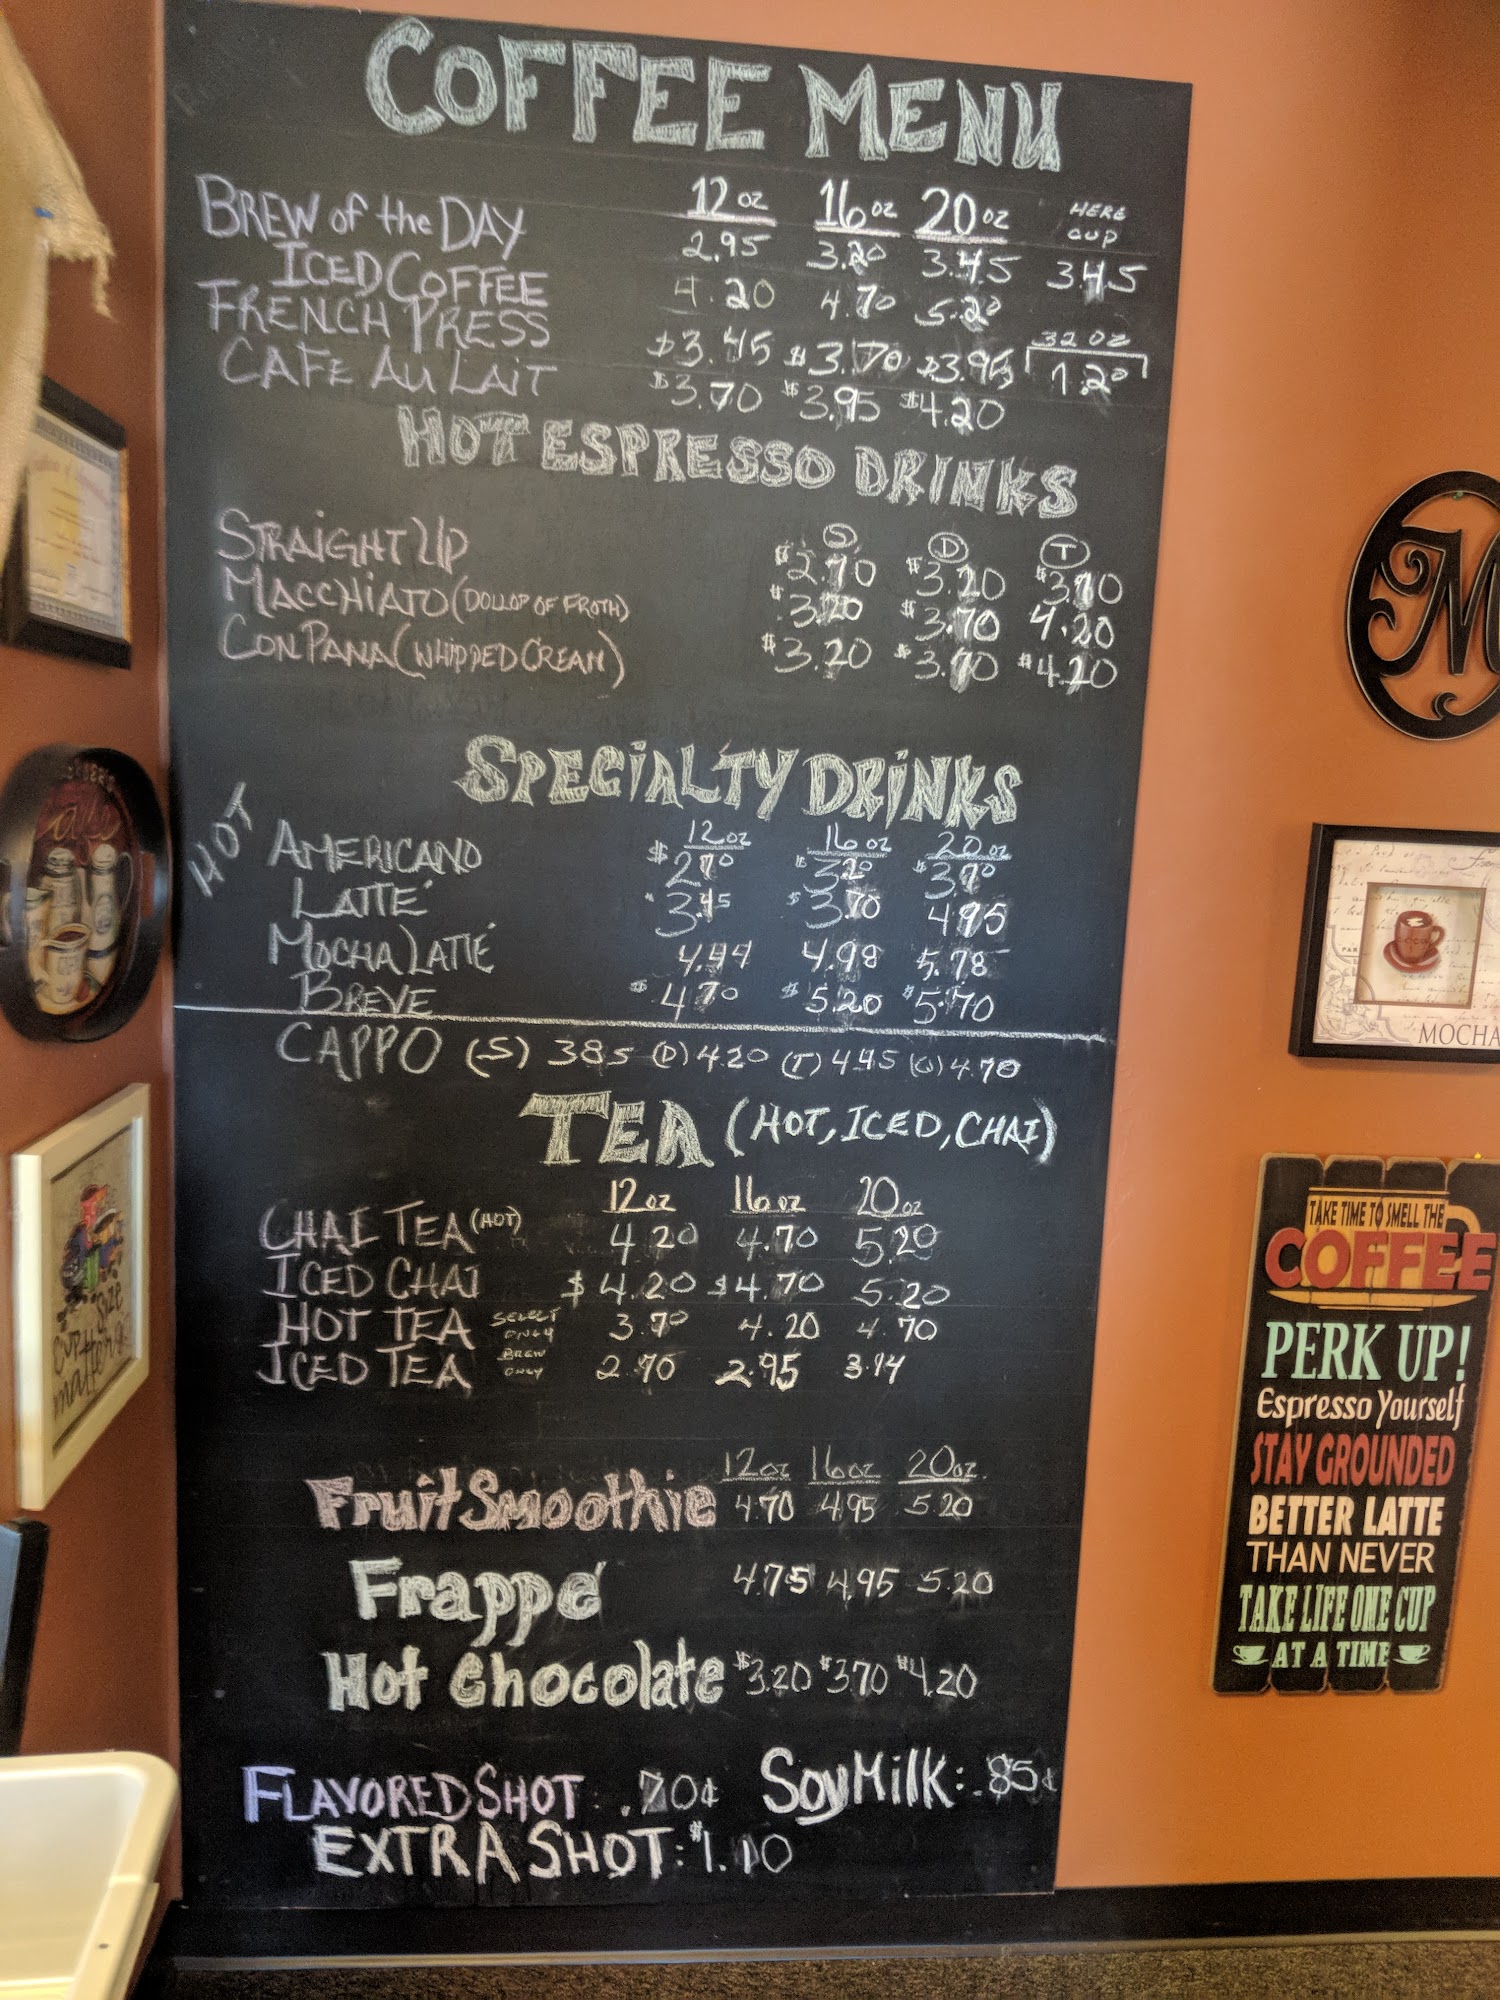 COFFEE MENU
12 oz 16 oz 20 oz HERE CUP
BREW of the DAY 2.95 3.20 3.45 3.45
ICED COFFEE 4.20 4.70 5.20
FRENCH PRESS $3.45 $3.70 $3.95 32 OZ 7.20
CAFE AU LAIT $3.70 $3.95 $4.20
HOT ESPRESSO DRINKS
S D T
STRAIGHT UP $2.70 $3.20 $3.70
MACCHIATO (DOLLOP OF FROTH) $3.20 $3.70 4.20
CON PANA (WHIPPED CREAM) $3.20 $3.70 $4.20
SPECIALTY DRINKS
HOT
12 oz 16 oz 20 oz
AMERICANO $2.70 $3.20 $3.70
LATTÉ $3.45 $3.70 4.95
MOCHA LATTÉ 4.44 4.98 5.78
BREVE $4.70 $5.20 $5.70
CAPPO (S) 385 (D) 4.20 (T) 4.45 (Q) 4.70
TEA (HOT, ICED, CHAI)
12 oz 16 oz 20 oz
CHAI TEA (HOT) 4.20 4.70 5.20
ICED CHAI $4.20 $4.70 5.20
HOT TEA SELECT ONLY 3.70 4.20 4.70
ICED TEA BREW ONLY 2.70 2.95 3.14
12 oz 16 oz 20 oz
Fruit Smoothie 4.70 4.95 5.20
Frappé 4.75 4.95 5.20
Hot Chocolate $3.20 $3.70 $4.20
FLAVORED SHOT .70¢ Soy Milk: .85¢
EXTRA SHOT: $1.10
M
MOCHA
TAKE TIME TO SMELL THE
COFFEE
PERK UP!
Espresso Yourself
STAY GROUNDED
BETTER LATTE
THAN NEVER
TAKE LIFE ONE CUP
AT A TIME